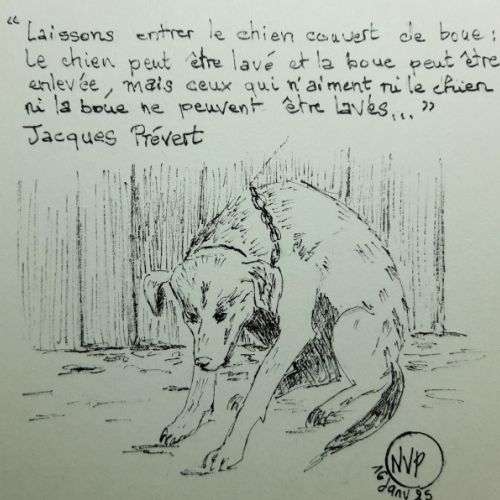 “Laissons entrer le chien couvert de boue :
Le chien peut être lavé et la boue peut être
enlevée, mais ceux qui n'aiment ni le chien
ni la boue ne peuvent être lavés...”
Jacques Prévert
NVP
16 Janv 25